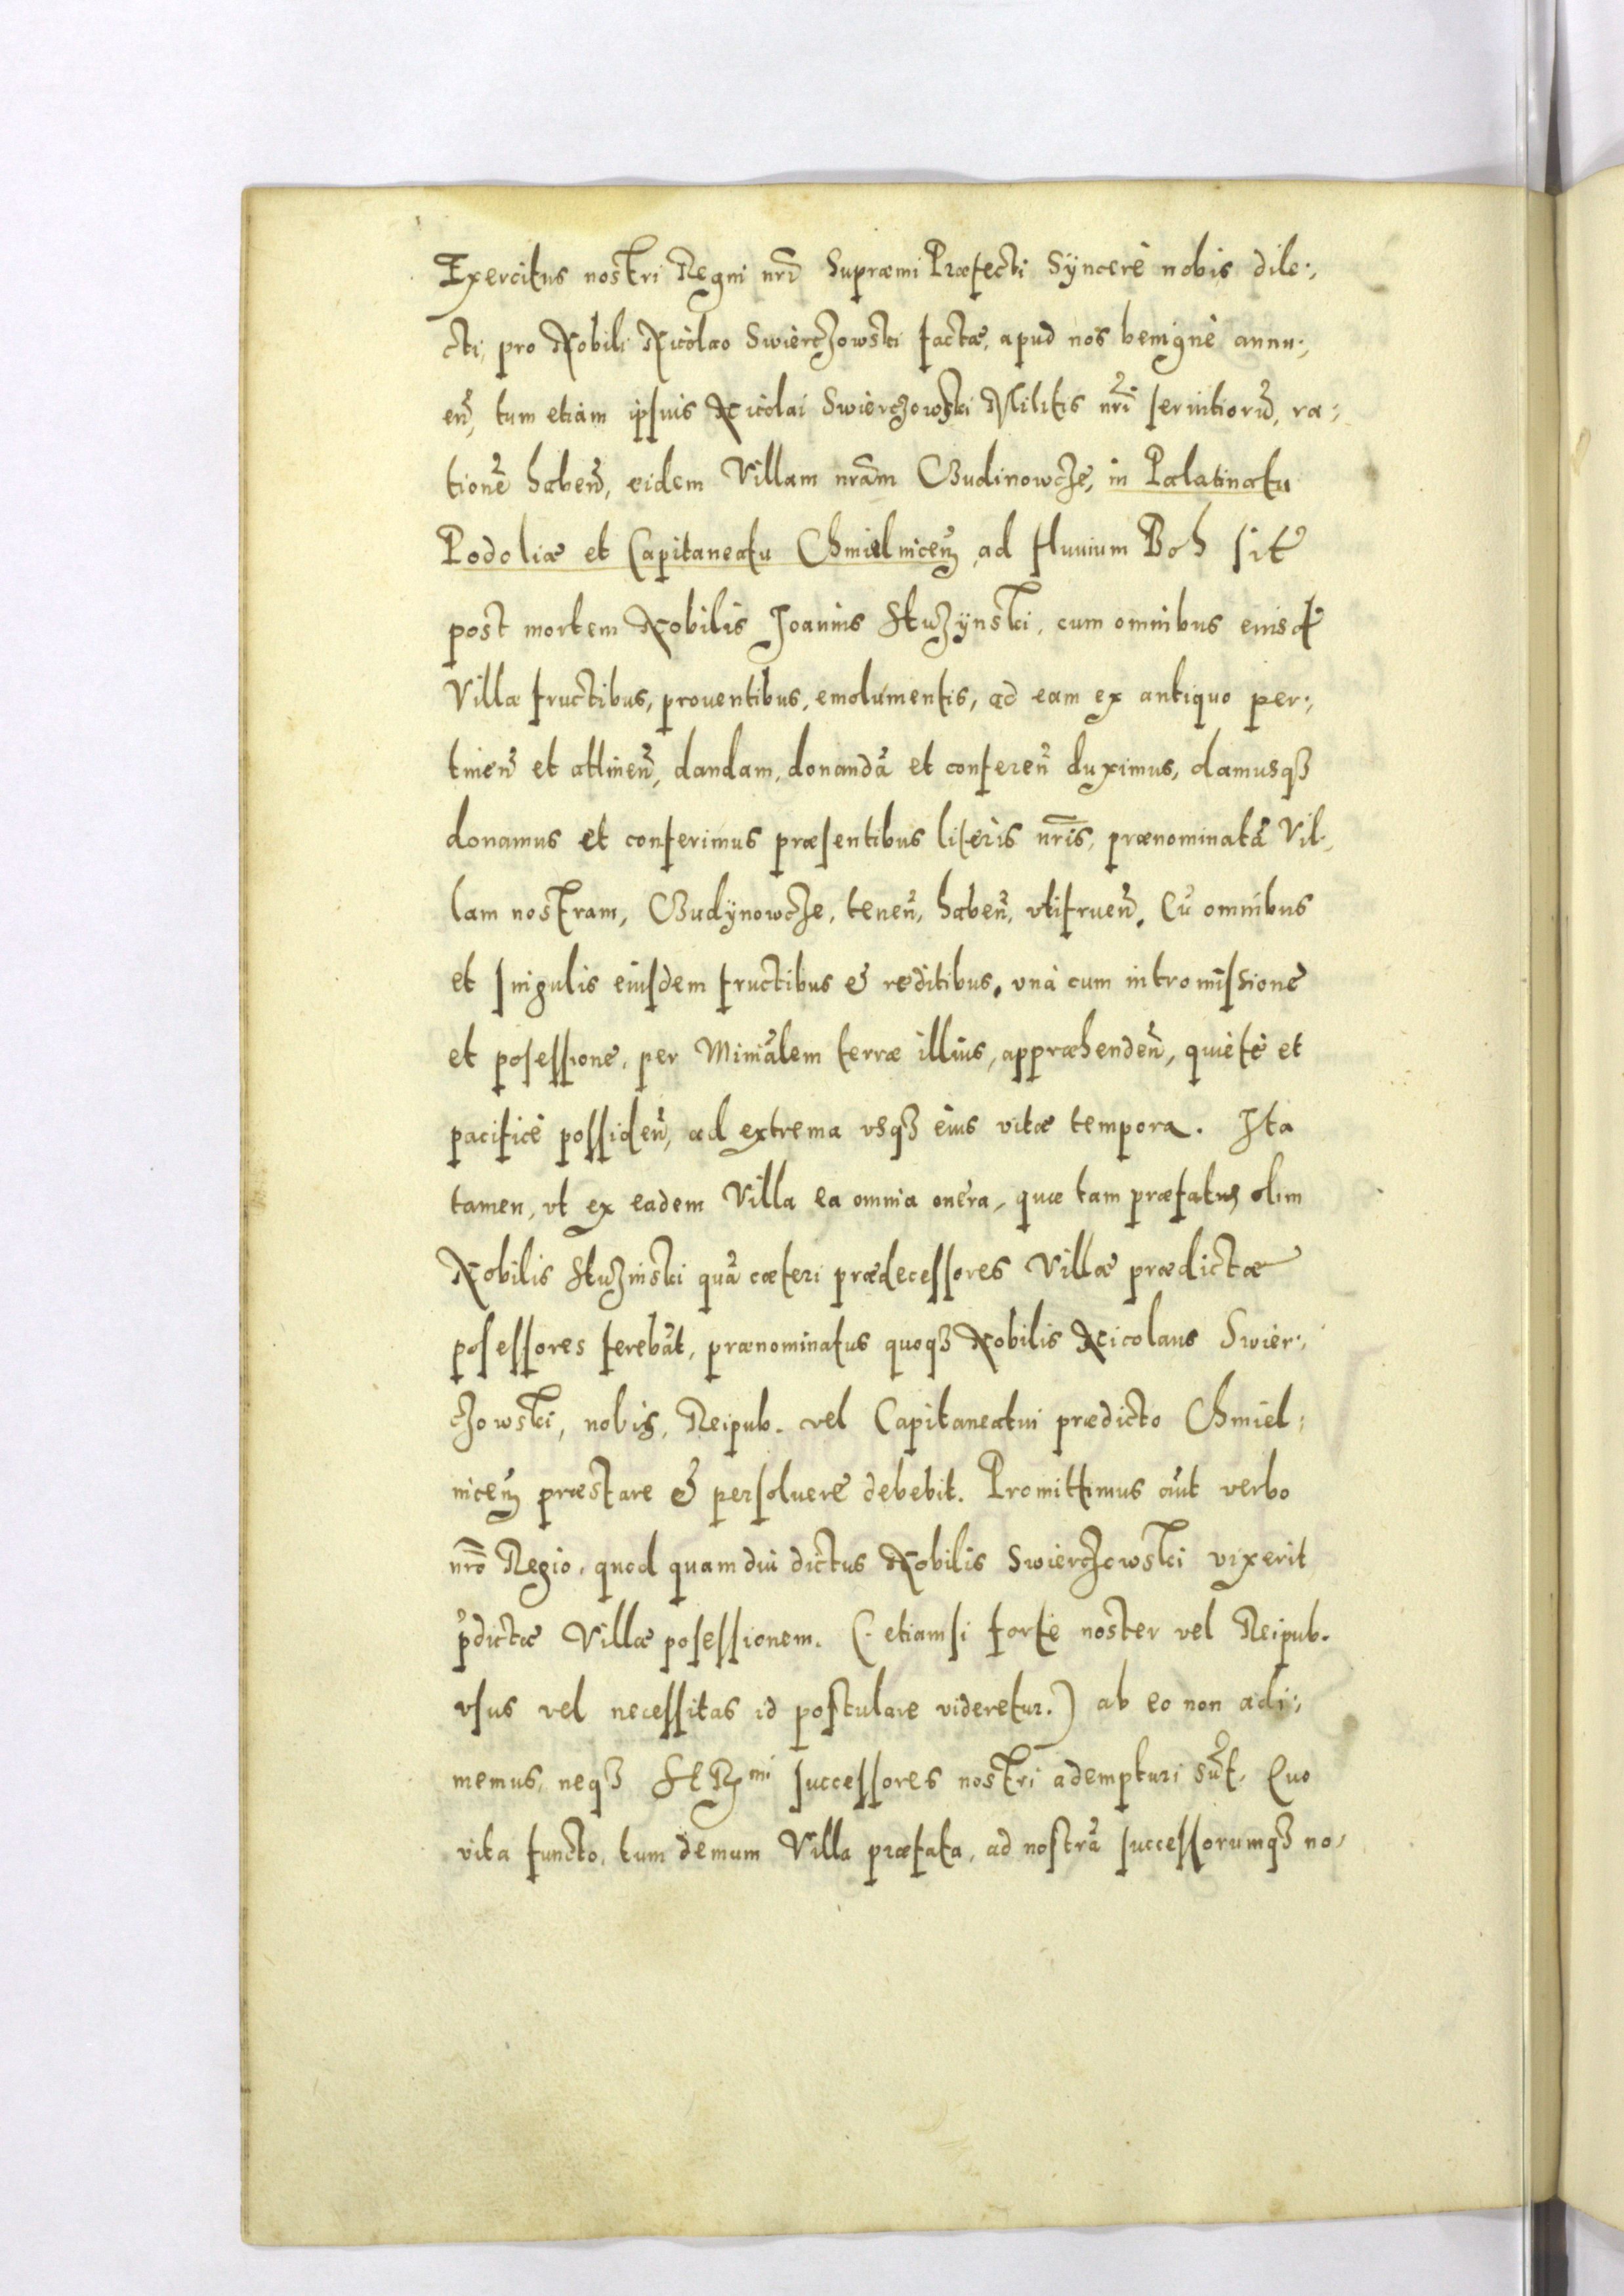 Exercitus nostri Regni nri̅ Supræmi Præfecti Sÿncerè nobis dile:,
cti, pro Nobili Nicolao Swierczowski factæ, apud nos benignè annu:,
en̅, tum etiam ipsuis Nicolai Swierczowski Militis nri̅ seruitioru̅, ra:,
tione̅ haben̅, eidem Villam nra̅m Budinowcze, in Palatinatu
Podoliæ et Capitaneatu Chmielnicen̅, ad fluuium Boh sit̅
post mortem Nobilis Joannis Stuzÿnski, cum omnibus eiusd̅
Villæ fructibus, prouentibus, emolumentis, ad eam ex antiquo per:,
tinen̅ et attinen̅, dandam, donanda̅ et conferen̅ duximus, damusqꝫ
donamus et conferimus præsentibus literis nri̅s, prænominata̅ Vil:,
lam nostram, Budÿnowcze, tenen̅, haben̅, vtifruen̅. Cu̅ omnibus
et singulis eiusdem fructibus & reditibus, vnà cum intromissione
et posessione, per Minia̅lem terræ illius, appræhenden̅, quietè et
pacificè possiden̅, ad extrema vsqꝫ eius vitæ tempora. Ita
tamen, vt ex eadem Villa ea omnia onera, quæ tam præfatus olim
Nobilis Stuzinski qua̅ cæteri prædecessores Villæ prædictæ
posessores fereba̅t, prænominatus quoqꝫ Nobilis Nicolaus Swier:,
czowski, nobis, Reipub. vel Capitaneatui prædicto Chmiel:,
nicen̅ præstare & persoluere debebit. Promittimus au̅t verbo
nro̅ Regio, quod quam diu dictus Nobilis Swierczowski vixerit
p̅dictæ Villæ posessionem. (. etiamsi fortè noster vel Reipub.
vsus vel necessitas id postulare videretur.) ab eo non adi:,
memus, neqꝫ Ser̅mi successores nostri adempturi su̅t, Quo
vita functo, tum demum Villa præfata, ad nostra̅ successorumqꝫ no:,